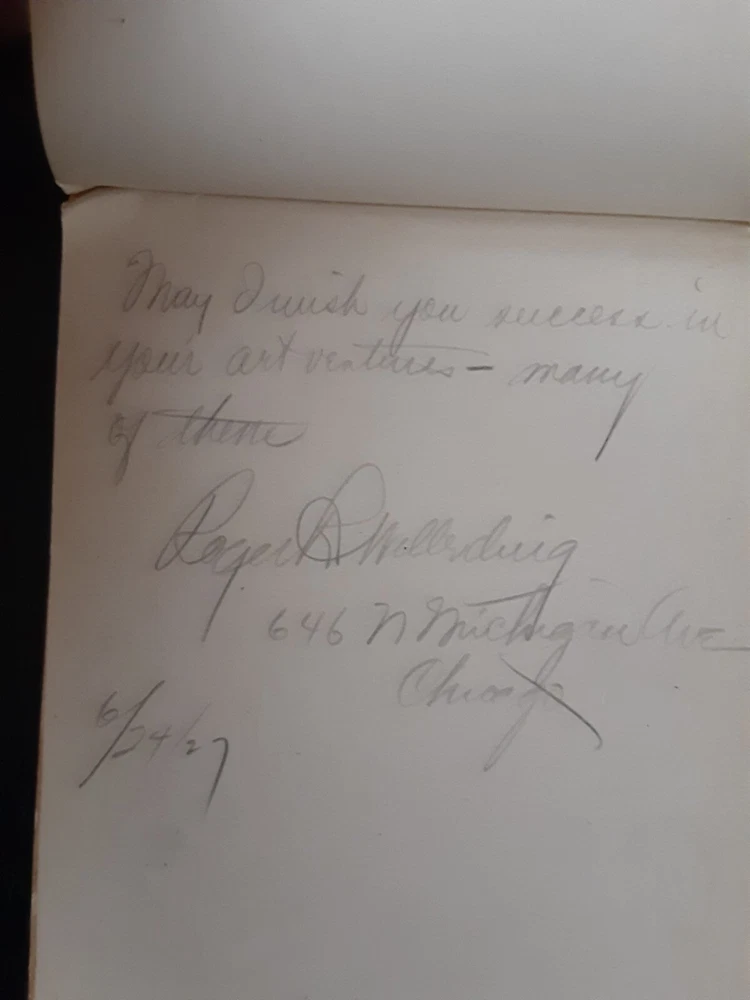 May I wish you success in
your art ventures – many
of them
Roger R Wollerding
646 N Michigan Ave
Chicago
6/24/27